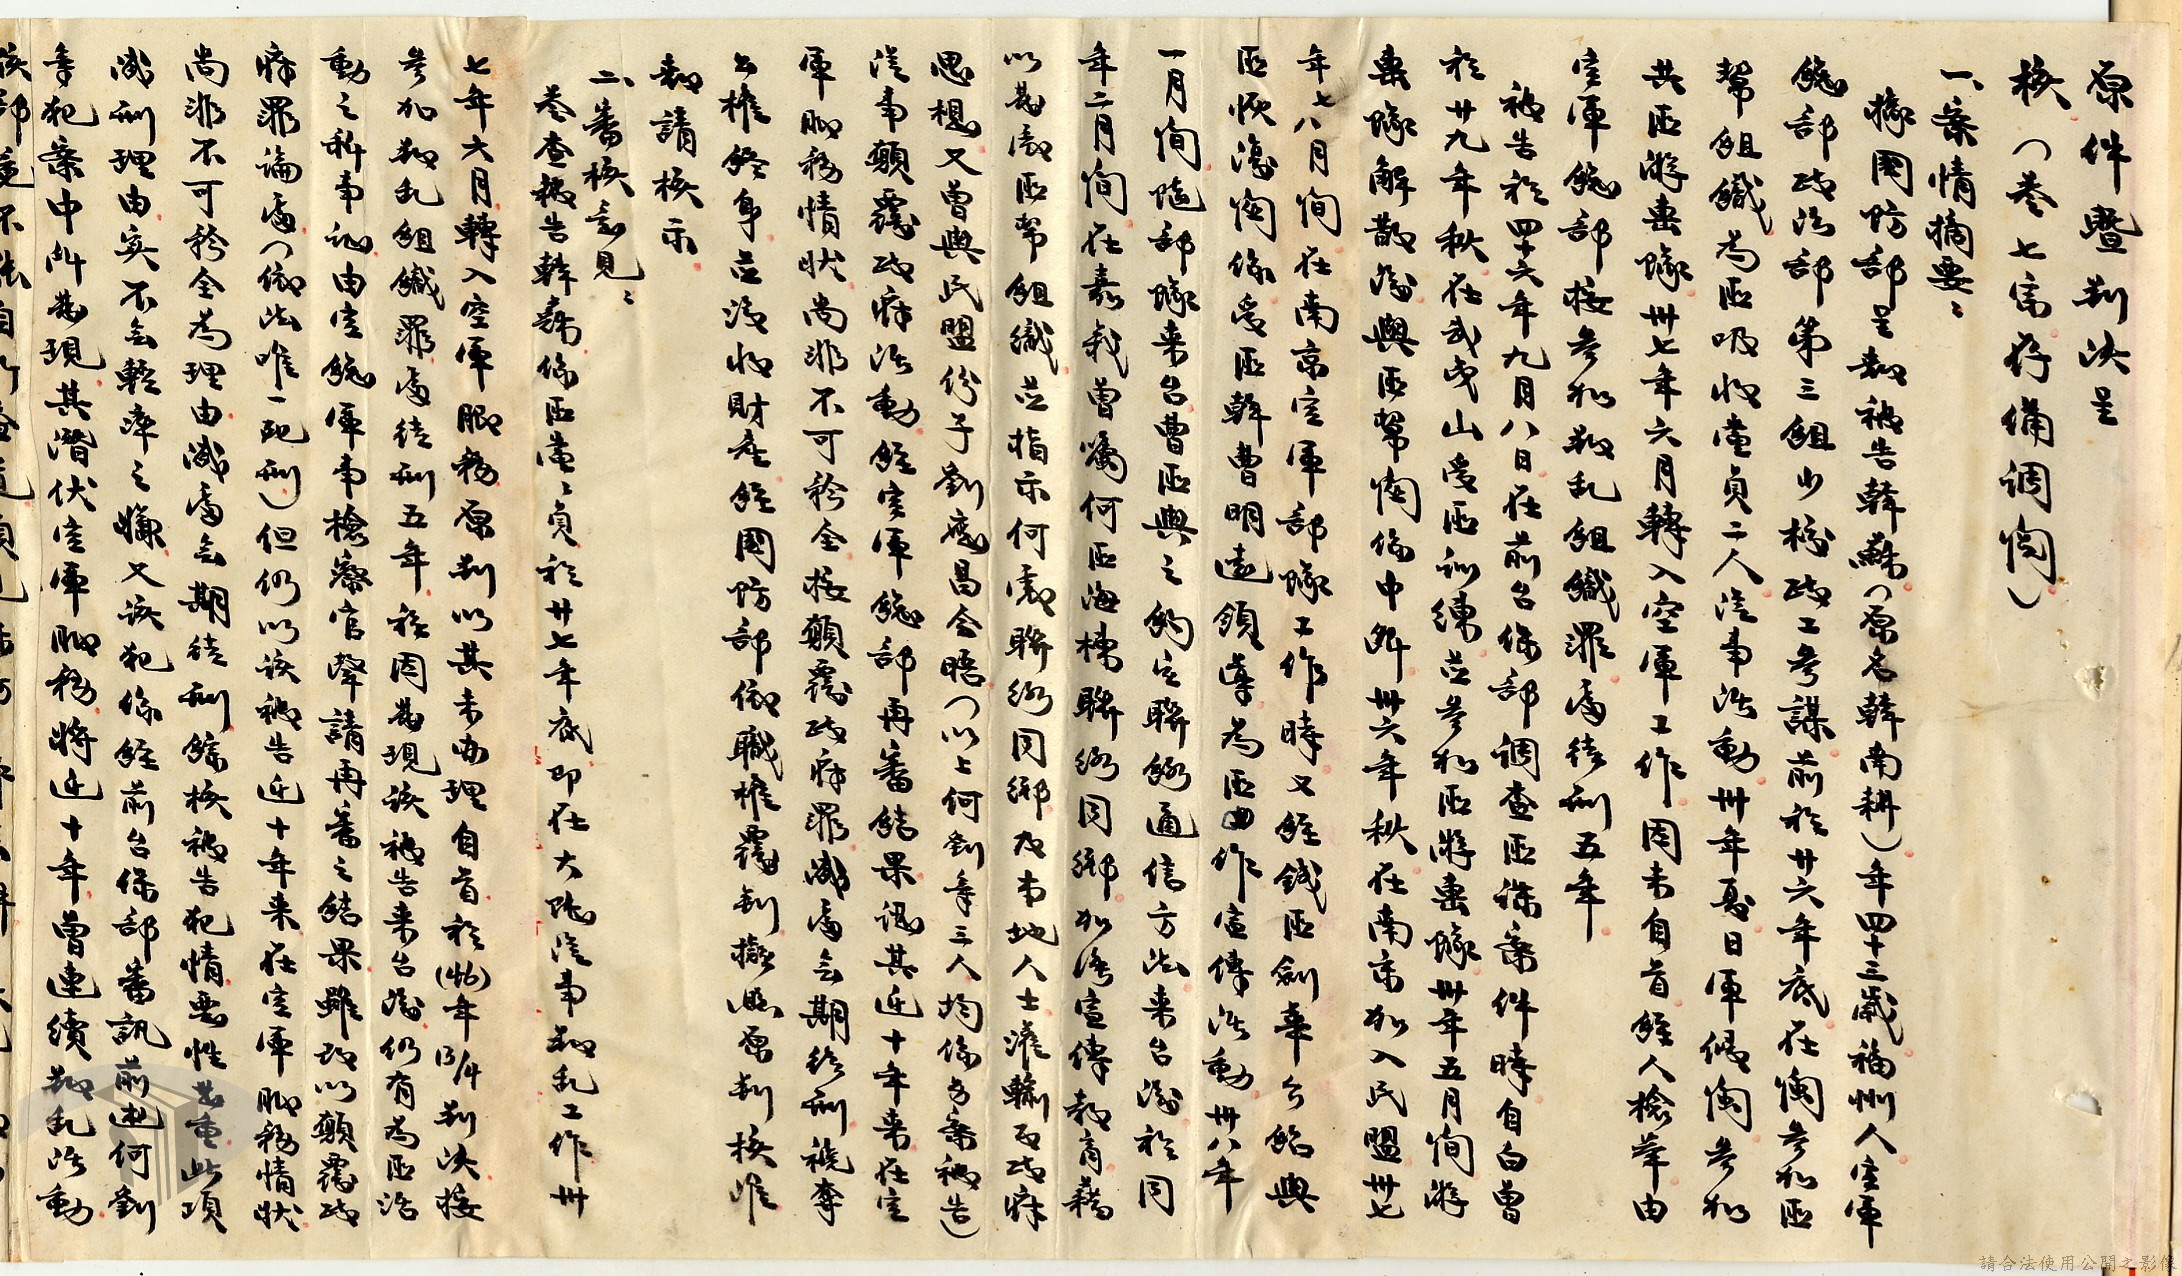 原件暨判決呈
核（卷七宗存備調閱）
一、案情摘要：
據國防部呈報被告韓 （原名韓南耕）年四十三歲福州人空軍
總部政治部第三組少校政工參謀前於卅六年底在閩參加匪
幫組織為匪吸收黨員二人從事活動卅年夏日軍侵閩參加
共匪游擊隊卅七年六月轉入空軍工作因未自首經人檢舉由
空軍總部按參加叛乱組織罪處徒刑五年
被告於四十六年九月八日在前台保部調查匪諜案件時自白曾
於廿九年秋在武夷山受匪訓練並參加匪游擊隊卅年五月間游
擊隊解散後與匪幫關係中斷卅六年秋在南京加入民盟卅七
年七八月間在南京空軍部隊工作時又經匪劉 介紹與
匪恢復關係受匪幹曹明遠領導為匪 作宣傳活動卅八年
一月間隨部隊來台曹匪與之約定聯絡通信方法來台後於同
年二月間在嘉義曾囑何匪海樓聯絡同鄉加強宣傳教育藉
以發展匪幫組織並指示何處聯絡同鄉及本地人士灌輸反政府
思想又曾與民盟份子劉應昌會晤（以上何劉等三人均係另案被告）
從事顛覆政府活動經空軍總部再審結果認其近十年來在空
軍服務情狀尚非不可矜全按顛覆政府罪減處無期徒刑褫奪
公權終身並沒收財產經國防部依職權覆判擬照原判核准
報請核示
二、審核意見：
卷查被告韓 係匪黨黨員於卅七年底即在大陸從事叛乱工作卅
七年六月轉入空軍服務原判以其未辦理自首於 年 判決按
參加叛乱組織罪處徒刑五年 因發現該被告來台後仍有為匪活
動之新事證由空總軍事檢察官聲請再審之結果雖改以顛覆政
府罪論處（依法唯一死刑）但仍以該被告近十年來在空軍服務情狀
尚非不可矜全為理由減處無期徒刑經核被告犯情惡性甚重此項
減刑理由實不無輕率之嫌又該犯係經前台保部審訊前述何劉
等犯案中所發現其潛伏空軍服務將近十年曾連續叛乱活動